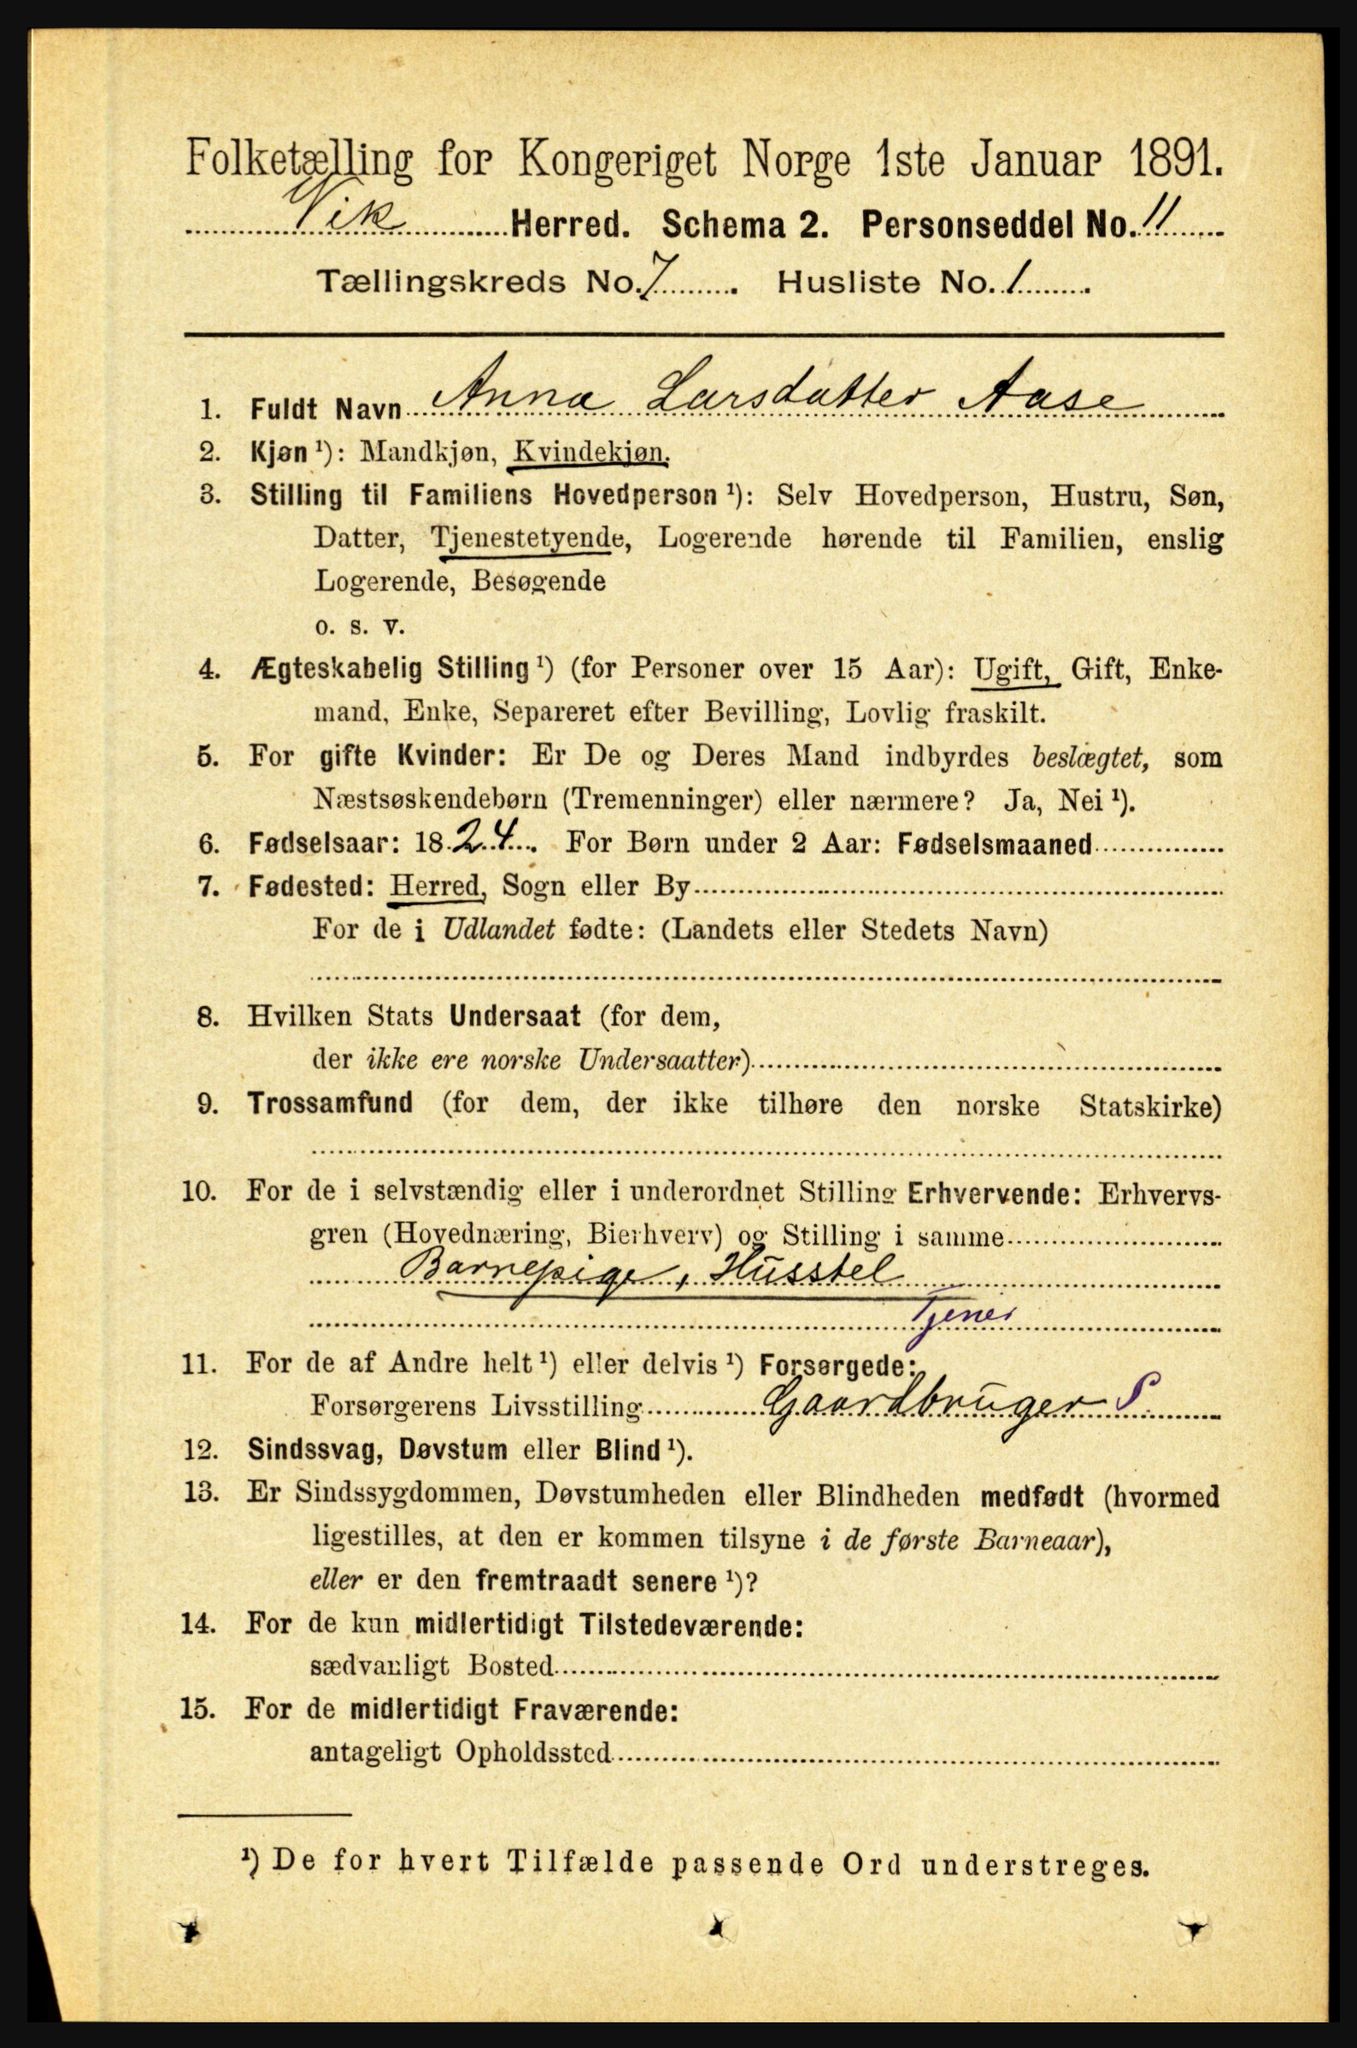 Folketælling for Kongeriget Norge 1ste Januar 1891.
Vik Herred. Schema 2. Personseddel No. 11
Tællingskreds No. 7. Husliste No. 1.
1. Fuldt Navn Anna Larsdatter Aase
2. Kjøn ¹): Mandkjøn, Kvindekjøn.
3. Stilling til Familiens Hovedperson ¹): Selv Hovedperson, Hustru, Søn,
Datter, Tjenestetyende, Logerende hørende til Familien, enslig
Logerende, Besøgende
o. s. v.
4. Ægteskabelig Stilling ¹) (for Personer over 15 Aar): Ugift, Gift, Enke-
mand, Enke, Separeret efter Bevilling, Lovlig fraskilt.
5. For gifte Kvinder: Er De og Deres Mand indbyrdes beslægtet, som
Næstsøskendebørn (Tremenninger) eller nærmere? Ja, Nei ¹).
6. Fødselsaar: 1824. For Børn under 2 Aar: Fødselsmaaned
7. Fødested: Herred, Sogn eller By
For de i Udlandet fødte: (Landets eller Stedets Navn)
8. Hvilken Stats Undersaat (for dem,
der ikke ere norske Undersaatter)
9. Trossamfund (for dem, der ikke tilhøre den norske Statskirke)
10. For de i selvstændig eller i underordnet Stilling Erhvervende: Erhvervs-
gren (Hovednæring, Bierhverv) og Stilling i samme
Barnepige, Husstel
Tjener
11. For de af Andre helt ¹) eller delvis ¹) Forsørgede:
Forsørgerens Livsstilling Gaardbruger S.
12. Sindssvag, Døvstum eller Blind ¹).
13. Er Sindssygdommen, Døvstumheden eller Blindheden medfødt (hvormed
ligestilles, at den er kommen tilsyne i de første Barneaar),
eller er den fremtraadt senere ¹)?
14. For de kun midlertidigt Tilstedeværende:
sædvanligt Bosted
15. For de midlertidigt Fraværende:
antageligt Opholdssted
¹) De for hvert Tilfælde passende Ord understreges.